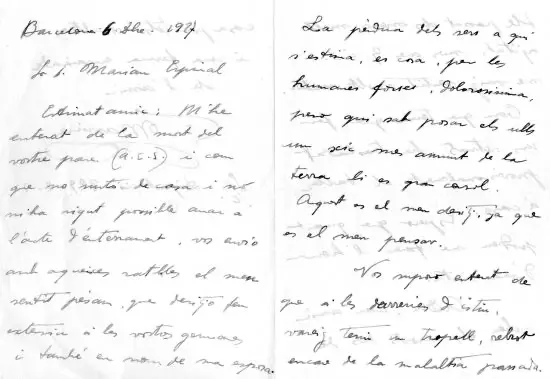 Barcelona 6 Dbre. 192
Sr. D. Marian Espinal
Estimat amic: M'he
enterat de la mort del
vostre pare (a.C.S.) i com
que no surto de casa i no
m'ha sigut possible anar a
l'acte d'enterrament, vos envio
amb aqueixes ratlles el meu
sentit pésam, que desitjo feu
extensiu a les vostres germanes
i també en nom de ma esposa.
La pèrdua dels sers a qui
s'estima, es cosa, per les
humanes forces, dolorosissima,
pero qui sab posar els ulls
un xic mes amunt de la
terra li es gran consol.
Aquest es el meu desitj, ja que
es el meu pensar.
Vos suposo enterat de
que a les darreries d'estiu,
vareig tenir un tropell, rebrot
encare de la malaltia passada.